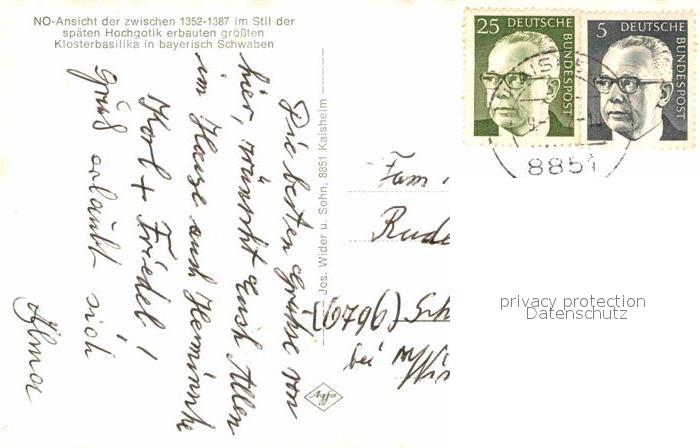 NO-Ansicht der zwischen 1352-1387 im Stil der
späten Hochgotik erbauten größten
Klosterbasilika in bayerisch Schwaben
Die besten Grüße von
hier, wünscht Euch Allen
im Hause und
Karl + Friedel!
Gruß erlaubt sich
Alma
Jos. Wider u. Sohn, 8851 Kaisheim
25 DEUTSCHE
BUNDESPOST
5 DEUTSCHE
BUNDESPOST
8851
Fam
Rude
(6796) Sch
bei
privacy protection
Datenschutz